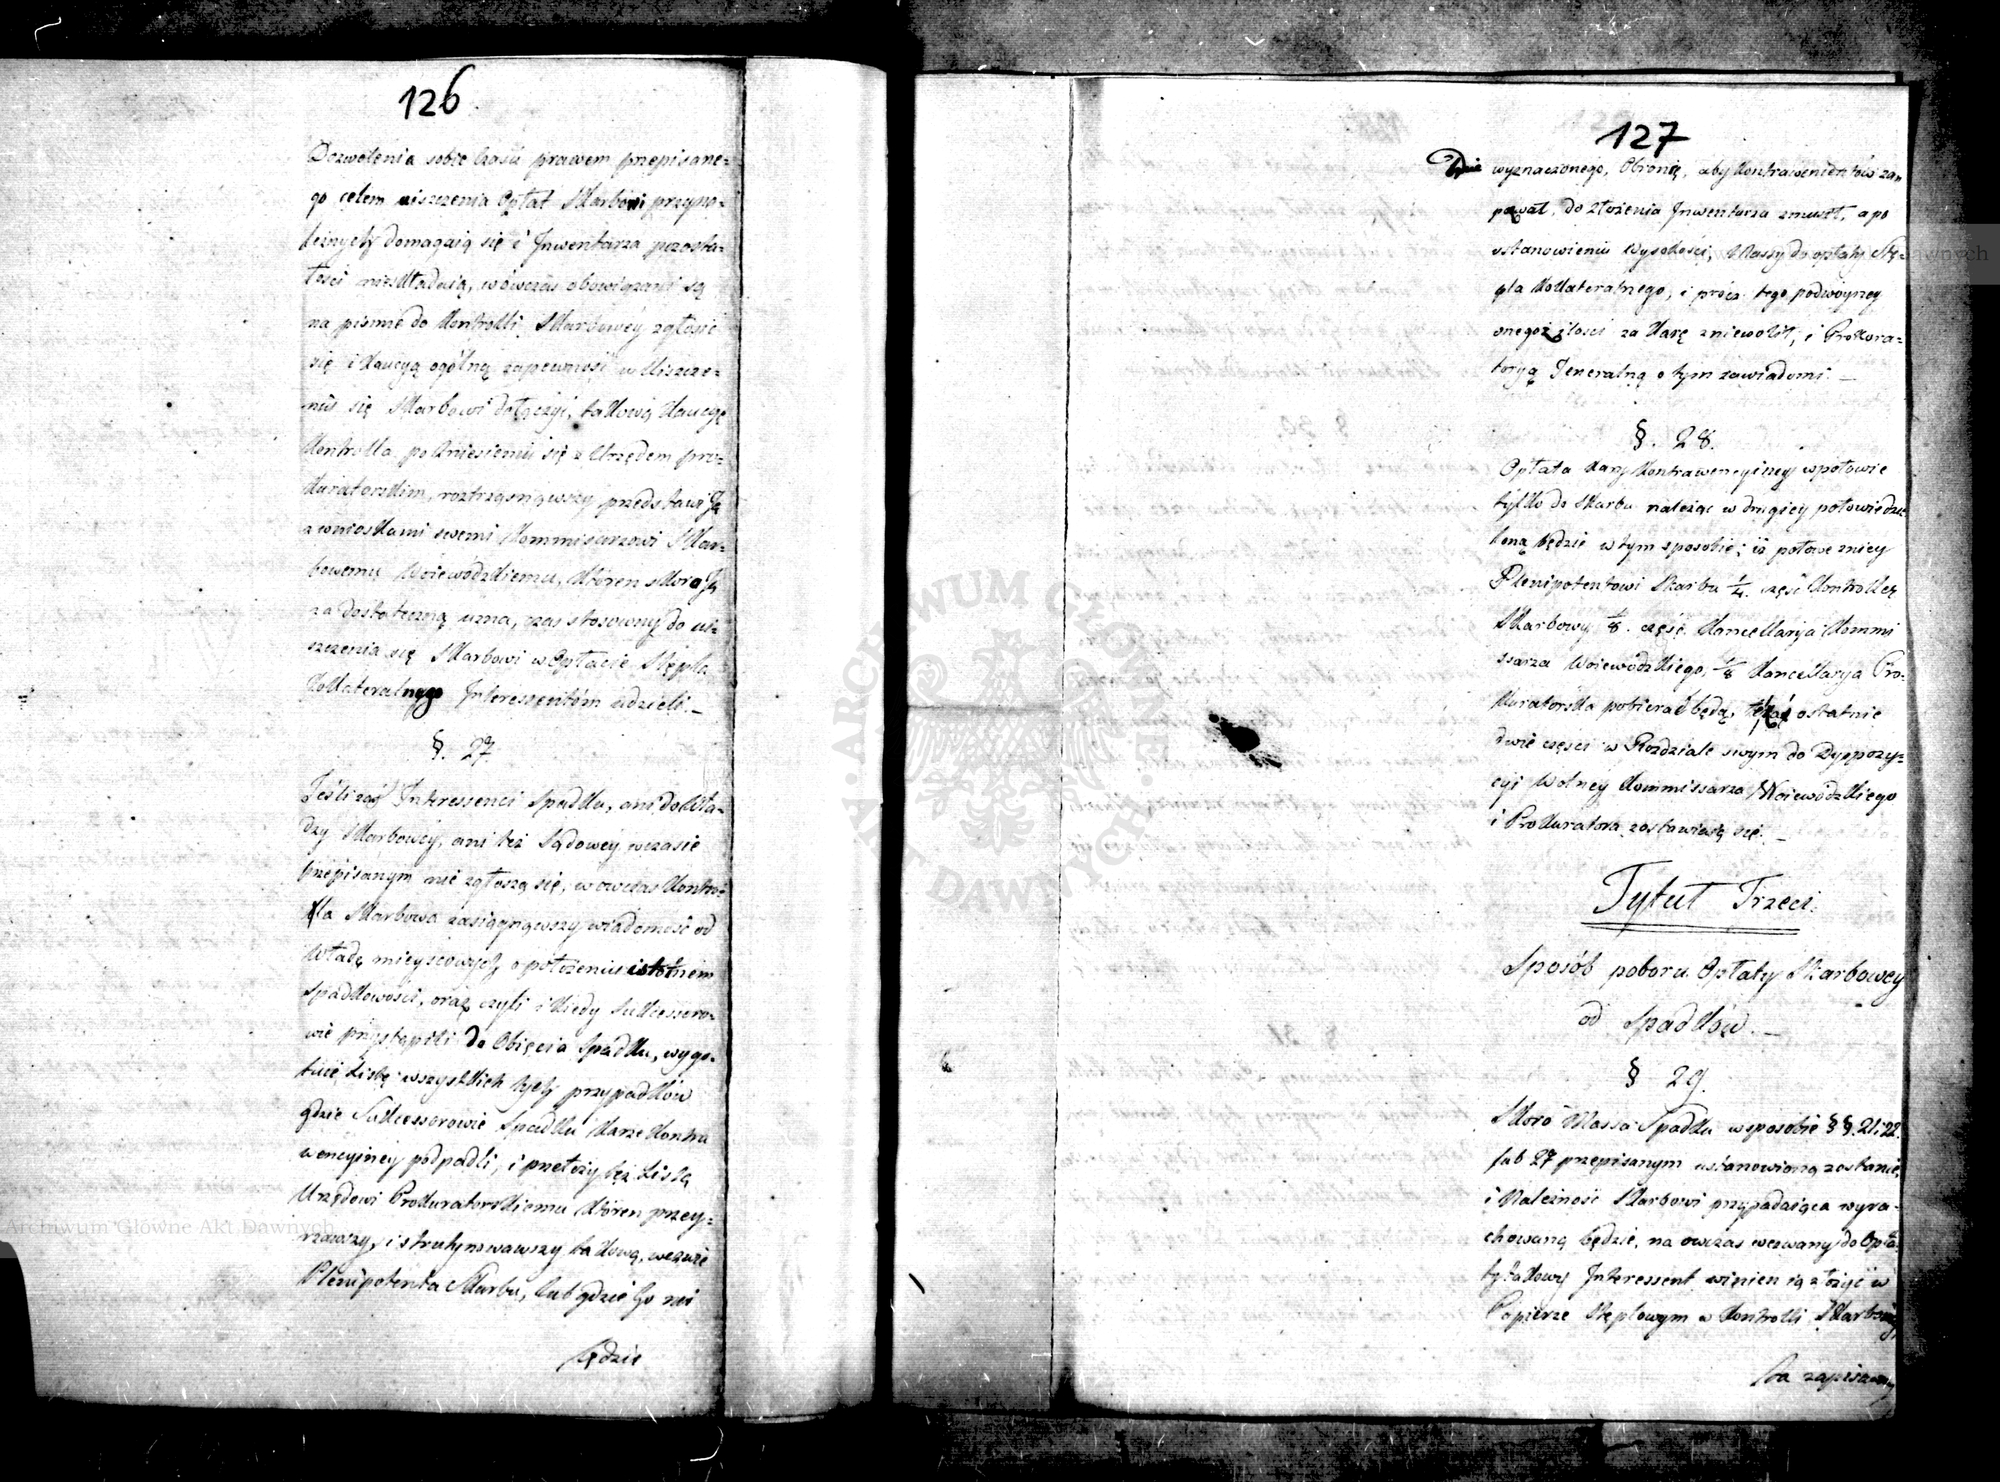 126
Dozwolenia sobie Czasu prawem przepisane=
go celem uiszczenia Opłat Skarbowi przyna=
leżnych domagaią się i Inwentarza pozosta=
łości nieskładaią, wówczas obowiązani są
na pismie do Kontrolli Skarbowéy zgłosić
się i Kaucyą ogólną zapewność w Uiszcze=
niu się Skarbowi dołączyć, takową Kaucyę
Kontrolla po zniesieniu się z Urzędem pro=
kuratorskim, roztrząsnąwszy przedstawi Ją
z wnioskami swemi Kommissarzowi Skar=
bowemu Woiewódzkiemu, któren skoro Ją
za dostateczną uzna, czas stosowny do ui=
szczenia się Skarbowi w Opłacie Stępla
Kollateralnego Interessentóm udzieli._
§. 27
Jeśli zaś Interessenci Spadku, ani do Wła=
dzy Skarbowey, ani też Sądowéy w czasie
przepisanym nie zgłoszą się, wowczas Kontro=
lla Skarbowa zasiągnąwszy wiadomość od
Władz mieyscowych o położeniu istotnem
Spadkowości, oraz czyli i kiedy Sukcessoro=
wie przystąpili do Obięcia Spadku, wygo=
tuie Listę wszystkich tych przypadków
gdzie Sukcessorowie Spadku Karze Kontra
wencyiney podpadli, i przełoży też Listę
Urzędowi Prokuratorskiemu któren przey=
rzawszy, i strutynowawszy takową, wezwie
Plenipotenta Skarbu, lub gdzie Go nie
będzie
127
wyznaczonego, Obronię, aby Kontrawenientów za=
pozwał, do złożenia Inwentarza zmusił, a po
ustanowieniu Wysokości, Massy do opłaty Stę=
pla Kollateralnego, i prócz tego podwóyney
onegoż ilości za Karę zniewolił, i Prokura=
toryą Generalną o tym zawiadomi._
§. 28.
Opłata Kary Kontrawencyiney w połowie
tylko do Skarbu należąc w drugiey połowie dzie
loną będzie w tym sposobie; iż połowę zniey
Plenipotentowi Skarbu 1/4. część Kontrollerz
Skarbowy 1/8. część Kancellarya Kommi
ssarza Woiewódzkiego, 1/8 Kancellarya Pro=
kuratorska pobierać będą, też ostatnie
dwie części w Rozdziale swym do Dyspozy=
cyi Wolney Kommissarza Woiewódzkiego
i Prokuratora zostawiaią się._
Tytuł Trzeci.
Sposób poboru Opłaty Skarbowey
od Spadków._
§ 29.
Skoro Massa Spadku w sposobie §§. 21. 22.
lub 27 przepisanym ustanowioną zostanie,
i Należność Skarbowi przypadaiąca wyra=
chowaną będzie, na owczas wezwany do Opła=
ty takowy Interessent winien ią złożyć w
Papierze Stęplowym w Kontrolli Skarbowey
za zapisaną
Archiwum Główne Akt Dawnych
ARCHIWUM GŁÓWNE AKT DAWNYCH